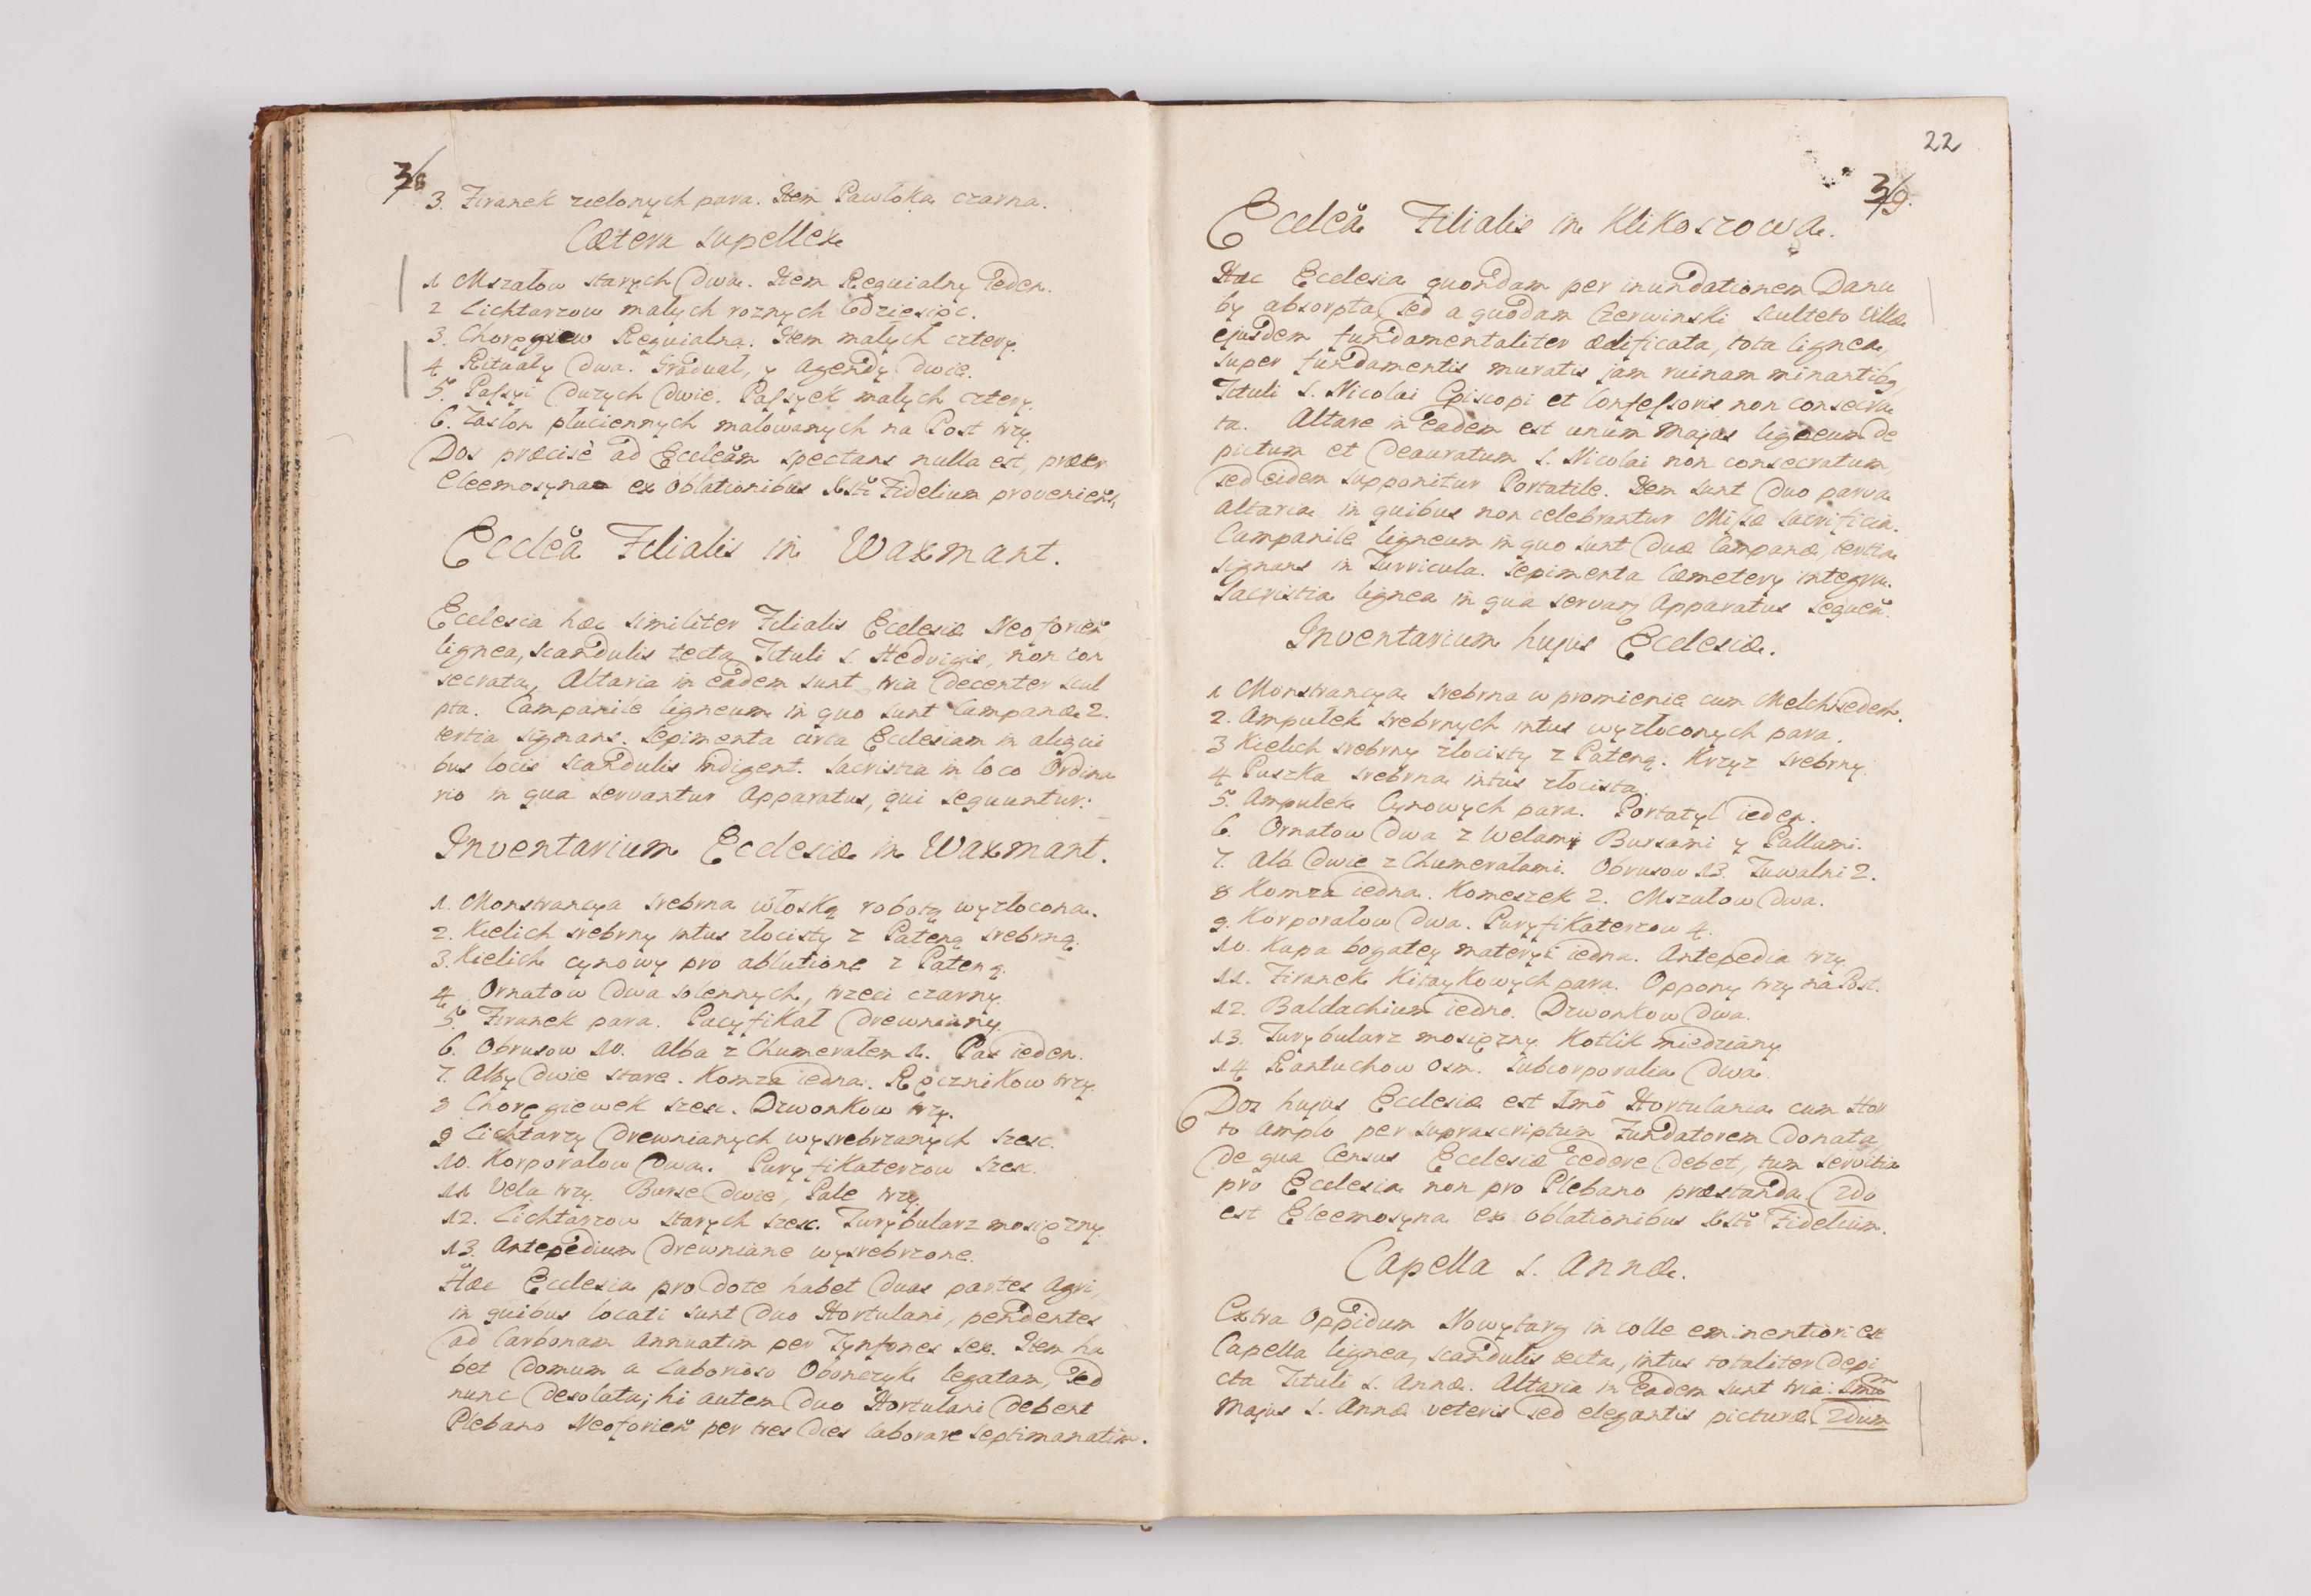 38
3. Firanek zielonych para. Item Pawłoka czarna.
Cætera supellex
1 Mszałow starych dwa. Item Requialny ieden.
2 Lichtarzow małych roznych dziesięc.
3. Choręgiew Requialna. Item małych cztery.
4 Rituały dwa. Graduał, y Agendy dwie.
5. Passyi duzych dwie. Passyek małych cztery.
6. Zasłon płuciennych malowanych na Post trzy.
Dos præcisè ad Eccleãm spectans nulla est, præter
Eleemosynae ex oblationibus Xsti Fidelium proveniens,
Eccleã Filialis in Waxmant.
Ecclesia hæc similiter Filialis Ecclesiæ Neoforien̄,
lignea, scandulis tecta, Tituli S. Hedvigis, non con
secrata, Altaria in eadem sunt tria decenter scul
pta. Campanile ligneum in quo sunt Campanæ 2.
tertia signans. Sepimenta circa Ecclesiam in aliqui
bus locis scandulis indigent. Sacristia in loco Ordina
rio in qua servantur Apparatus, qui sequuntur:
Inventarium Ecclesiæ in Waxmant.
1. Monstrancya srebrna włoską robotą wyzłocona.
2. Kielich srebrny intus złocisty z Pateną srebrną.
3. Kielich cynowy pro ablutione z Pateną.
4 Ornatow dwa solennych, trzeci czarny.
5. Firanek para. Pacyfikał drewniany.
6. Obrusow 10. Alba z Humerałem 1. Pas ieden.
7. Alby dwie stare. Komza iedna. Ręcznikow trzy.
8 Choręgiewek szesc. Dzwonkow trzy.
9 Lichtarzy drewnianych wysrebrzanych szesc.
10. Korporałow dwa. Puryfikaterzow szesc.
11 Vela trzy. Burse dwie, Pale trzy.
12. Lichtarzow starych szesc. Turybularz mosięzny.
13. Antepedium drewniane wysrebrzone.
Hæc Ecclesia pro dote habet duas partes Agri,
in quibus locati sunt duo Hortulani, pendentes
ad Carbonam annuatim per Tynfones sex. Item ha
bet domum a Laborioso Obonczyk legatam, sed
nunc desolata; hi autem duo Hortulani debent
Plebano Neoforien̄ per tres dies laborare septimanatim.
22
39.
Eccleã Filialis in Klikoszowa.
Hæc Ecclesia quondam per inundationem Danu
by absorpta, sed a quodam Czerwinski Sculteto Villæ
ejusdem fundamentaliter ædificata, tota lignea,
super fundamentis muratis jam ruinam minantibq
Tituli S. Nicolai Episcopi et Confessoris non consecra
ta. Altare in eadem est unum Majus ligneum de
pictum et deauratum S. Nicolai non consecratum,
sed eidem supponitur Portatile. Item sunt duo parva
altaria in quibus non celebrantur Missæ Sacrificia.
Campanile ligneum in quo sunt duæ Campanæ, tertia
signans in Turricula. Sepimenta Cæmetery integra.
Sacristia lignea in qua servanʒ Apparatus sequen̄.
Inventarium hujus Ecclesiæ.
1 Monstrancya srebrna w promienie cum Melchisedech.
2. Ampułek srebrnych intus wyzłoconych para.
3 Kielich srebrny złocisty z Pateną. Krzyz srebrny.
4 Puszka srebrna intus złocista.
5. Ampułek Cynowych para. Portatyl ieden.
6. Ornatow dwa z Welamy Bursami y Pallami.
7. Alb dwie z Chumerałami. Obrusow 13. Tuwalni 2.
8 Komza iedna. Komeszek 2. Mszałow dwa.
9. Korporałow dwa. Puryfikaterzow 4.
10. Kapa bogatey materyi iedna. Antepedia trzy.
11. Firanek Kitaykowych para. Oppony trzy na Post.
12. Baldachium iedno. Dzwonkow dwa.
13. Turybularz mosięzny. Kotlik miedziany.
14 Rantuchow osm. Subcorporalia dwa.
Dos hujus Ecclesiæ est 1mõ Hortulania cum Hor
to amplo per suprascriptum Fundatorem donata,
de qua Census Ecclesiæ cedere debet, tum servitia
pro Ecclesia non pro Plebano præstanda. 2do
est Eleemosyna ex oblationibus Xsti Fidelium.
Capella S. Annæ.
Extra Oppidum Nowytarg in colle eminentiori est
Capella lignea, scandulis tecta, intus totaliter depi
cta Tituli S. Annæ. Altaria in eadem sunt tria: 1mum
Majus S. Annæ veteris sed elegantis picturæ. 2dum